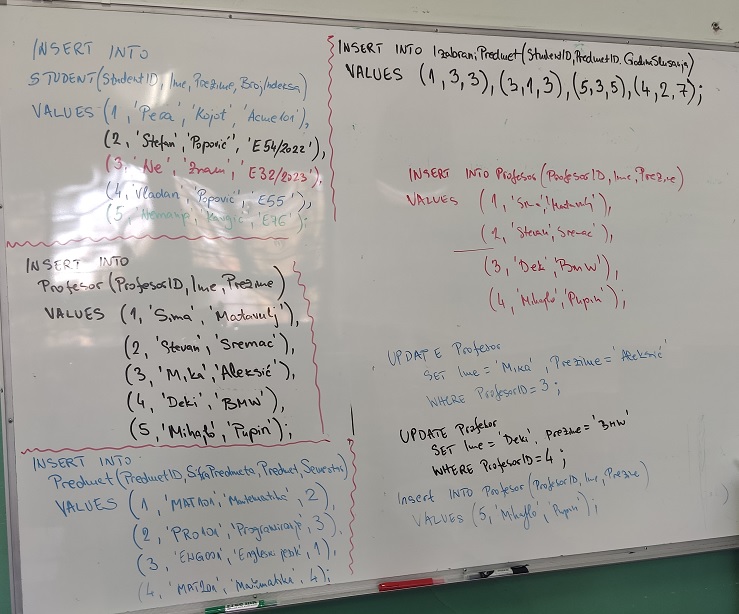 INSERT INTO
STUDENT(StudentID, Ime, Prezime, BrojIndexsa)
VALUES (1, 'Pera', 'Kojot', 'Acmelor'),
(2, 'Stefan', 'Popović', 'E54/2022'),
(3, 'Ne', 'Znam', 'E32/2023'),
(4, 'Vladan', 'Popović', 'E55'),
(5, 'Nemanja', 'E76');
INSERT INTO
Profesor (ProfesorID, Ime, Prezime)
VALUES (1, 'Sima', 'Matavulj'),
(2, 'Stevan', 'Sremac'),
(3, 'Mika', 'Aleksić'),
(4, 'Deki', 'BMW'),
(5, 'Mihajlo', 'Pupin');
INSERT INTO
Predmet (PredmetID, SifraPredmeta, Predmet, Semestar)
VALUES (1, 'MAT101', 'Matematika', 2),
(2, 'PRO101', 'Programiranje', 3),
(3, 'ENG001', 'Engleski jezik', 1),
(4, 'MAT201', 'Matematika', 4);
INSERT INTO IzabraniPredmet (StudentID, PredmetID, GodinaSlusanja)
VALUES (1, 3, 3), (3, 1, 3), (5, 3, 5), (4, 2, 7);
INSERT INTO Profesor (ProfesorID, Ime, Prezime)
VALUES (1, 'Sima', 'Matavulj'),
(2, 'Stevan', Sremac'),
(3, 'Deki', 'BMW'),
(4, 'Mihajlo', 'Pupin');
UPDATE Profesor
SET Ime = 'Mika', Prezime = 'Aleksić'
WHERE ProfesorID = 3;
UPDATE Profesor
SET Ime = 'Deki', prezime = 'BMW'
WHERE ProfesorID = 4;
Insert INTO Profesor (ProfesorID, Ime, Prezime)
VALUES (5, 'Mihajlo', 'Pupin');